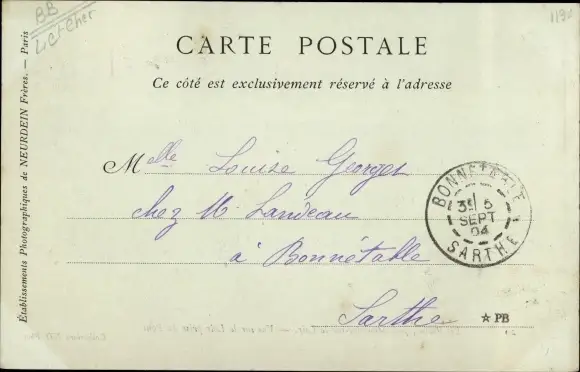 BB
L et Cher
1130
CARTE POSTALE
Ce côté est exclusivement réservé à l'adresse
Établissements Photographiques de NEURDEIN Frères. — Paris
Melle Louise Georges
chez M. Landeau
à Bonnétable
Sarthe
BONNÉTABLE
3E 5
SEPT
04
SARTHE
☆ PB